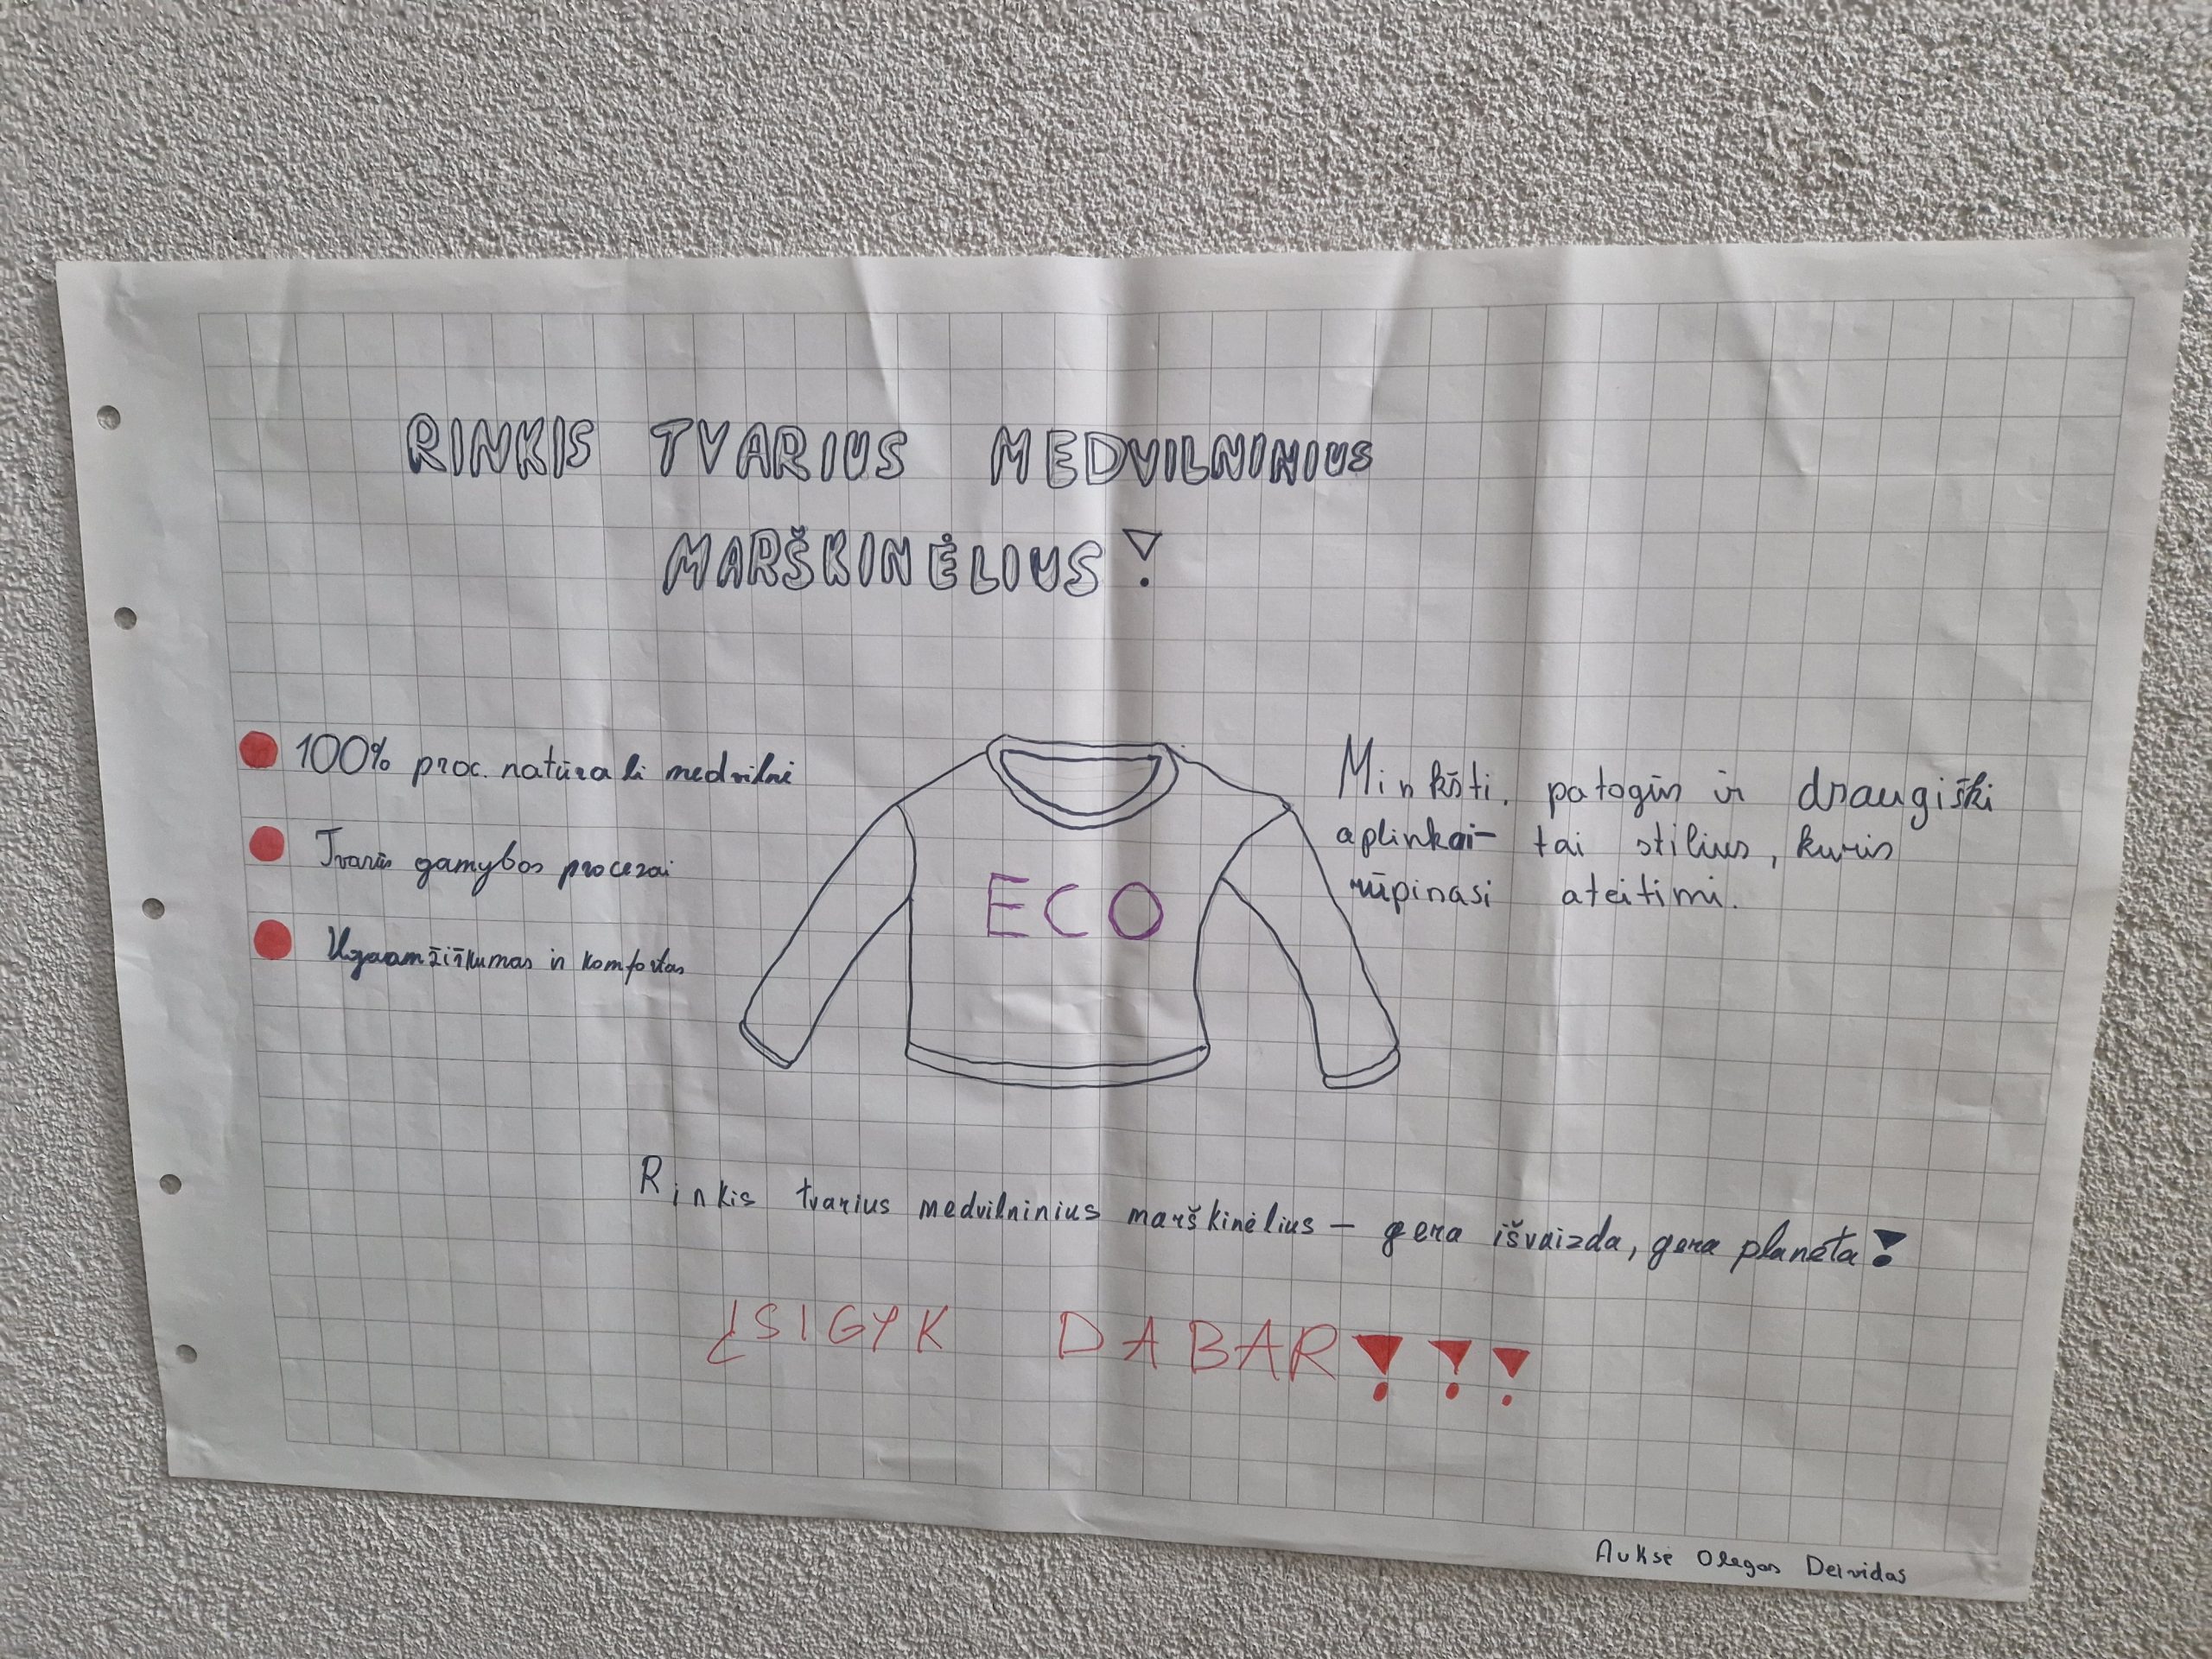 RINKIS TVARIUS MEDVILNINIUS
MARŠKINĖLIUS!
100% proc. natūrali medvilnė
Tvarūs gamybos procesai
ir komfortas
ECO
Minkšti, patogūs ir draugiški
aplinkai- tai stilius, kuris
rūpinasi ateitimi.
Rinkis tvarius medvilninius marškinėlius – gera išvaizda, gera planeta!
ĮSIGYK DABAR!!!
Auksė Olegas Deividas